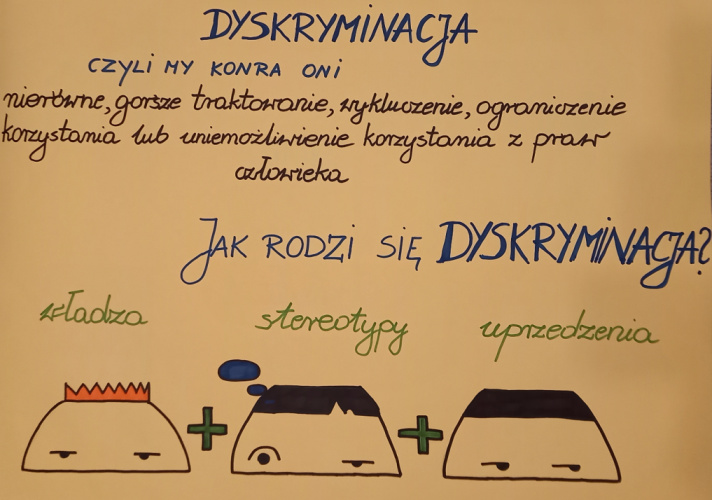 DYSKRYMINACJA
CZYLI MY KONRA ONI
nierówne, gorsze traktowanie, wykluczenie, ograniczenie
korzystania lub uniemożliwienie korzystania z praw
człowieka
JAK RODZI SIĘ DYSKRYMINACJA?
władza stereotypy uprzedzenia
+ +